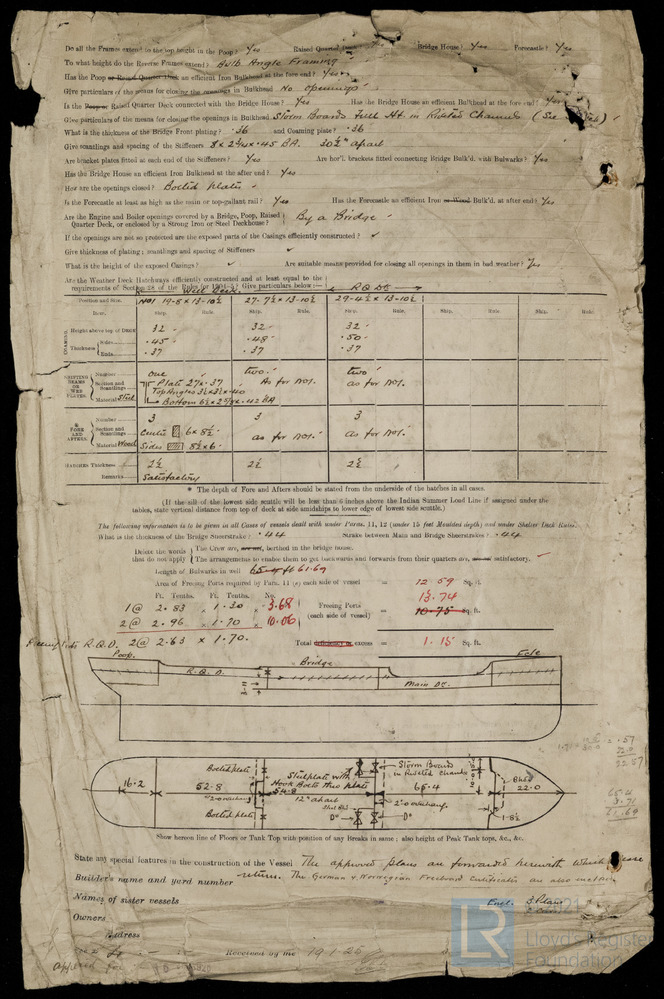 Do all the Frames extend to the top height in the Poop? Yes Raised Quarter Deck Bridge House? Yes Forecastle? Yes
To what height do the Reverse Frames extend? Bulb Angle Framing
Has the Poop or Raised Quarter Deck an efficient Iron Bulkhead at the fore end? Yes
Give particulars of the means for closing the openings in Bulkhead No openings
Is the Poop or Raised Quarter Deck connected with the Bridge House? Yes Has the Bridge House an efficient Bulkhead at the fore end? Yes
Give particulars of the means for closing the openings in Bulkhead Storm Boards full Ht in Riveted Channels (See
What is the thickness of the Bridge Front plating? .36 and Coaming plate? .36
Give scantlings and spacing of the Stiffeners 8 x 2¾ x .45 BA. 30½" apart
Are bracket plates fitted at each end of the Stiffeners? Yes Are hor'l. brackets fitted connecting Bridge Bulk'd. with Bulwarks? Yes
Has the Bridge House an efficient Iron Bulkhead at the after end? Yes
How are the openings closed? Bolted plates
Is the Forecastle at least as high as the main or top-gallant rail? Yes Has the Forecastle an efficient Iron or Wood Bulk'd. at after end? Yes
Are the Engine and Boiler openings covered by a Bridge, Poop, Raised Quarter Deck, or enclosed by a Strong Iron or Steel Deckhouse? By a Bridge
If the openings are not so protected are the exposed parts of the Casings efficiently constructed? ✓
Give thickness of plating; scantlings and spacing of Stiffeners ✓
What is the height of the exposed Casings? ✓ Are suitable means provided for closing all openings in them in bad weather? Yes
Are the Weather Deck Hatchways efficiently constructed and at least equal to the
requirements of Section 28 of the Rules for Give particulars below:—
Well Deck R.Q.Dk
Position and Size. No1 19-8 x 13-10½ 27-7½ x 13-10½ 29-4½ x 13-10½
Item. Ship. Rule. Ship. Rule. Ship. Rule. Ship. Rule. Ship. Rule.
COAMING.
Height above top of Deck 32 32 32
Thickness Sides .45 .48 .50
Ends .37 .37 .37
SHIFTING BEAMS OR WEB PLATES.
Number one two two
Section and Scantlings Plate 27 x .37 As for No1. as for No1.
Top Angles 3½ x 3½ x .40
Material Steel Bottom 6½ x 2⅝ x .42 BA
FORE AND AFTERS.
Number 3 3 3
Section and Scantlings Centre 6 x 8½ as for No1. as for No1.
Material Wood Sides 8½ x 6
HATCHES Thickness 2½ 2½ 2½
Remarks Satisfactory
* The depth of Fore and Afters should be stated from the underside of the hatches in all cases.
(If the sill of the lowest side scuttle will be less than 6 inches above the Indian Summer Load Line if assigned under the
tables, state vertical distance from top of deck at side amidships to lower edge of lowest side scuttle.)
The following information is to be given in all Cases of vessels dealt with under Paras. 11, 12 (under 15 feet Moulded depth) and under Shelter Deck Rules.
What is the thickness of the Bridge Sheerstrake? .44 Strake between Main and Bridge Sheerstrakes? .44
Delete the words that do not apply
The Crew are, are not, berthed in the bridge house.
The arrangements to enable them to get backwards and forwards from their quarters are, are not satisfactory.
Length of Bulwarks in well 65.4 ft 61.69
Area of Freeing Ports required by Para. 11 (e) each side of vessel = 12.59 Sq. ft.
Ft. Tenths. Ft. Tenths. No. 13.74
1 @ 2.83 x 1.30 = 3.68 Freeing Ports
(each side of vessel) = 10.75 Sq. ft.
2 @ 2.96 x 1.70 = 10.06
R.Q.D. 2 @ 2.63 x 1.70. Total deficiency or excess = 1.15 Sq. ft.
Poop. R.Q.D. Bridge Main Dk. Fcle
Bolted plate Steel plate with Hook Bolts thro plate 12" apart Storm Boards in Riveted Channels
16.2 52.8 54.8 65.4 Bhd 22.0
2'0 overhang 2'0 overhang
Bolted plate Do Do 1-8½
Show hereon line of Floors or Tank Top with position of any Breaks in same; also height of Peak Tank tops, &c., &c.
State any special features in the construction of the Vessel The approved plans are forwarded herewith which please
Builder's name and yard number return. The German & Norwegian Freeboard Certificates are also enclosed
Names of sister vessels
Owners
Address
Received by me 19.1.25
LR
Lloyd's Register
Foundation